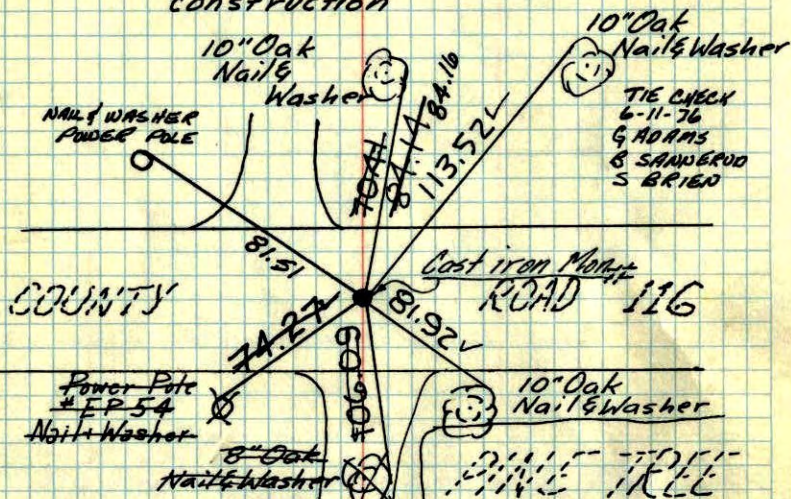 construction
10" Oak
Nail &
Washer
10" Oak
Nail & Washer
NAIL & WASHER
POWER POLE
TIE CHECK
6-11-76
G ADAMS
B SANNERUD
S BRIEN
84.14
84.16
113.52
81.51
Cast iron Mon
COUNTY ROAD 116
74.27
81.92
106.09
Power Pole
# EP 54
Nail + Washer
10" Oak
Nail & Washer
8" Oak
Nail & Washer
PINE TREE